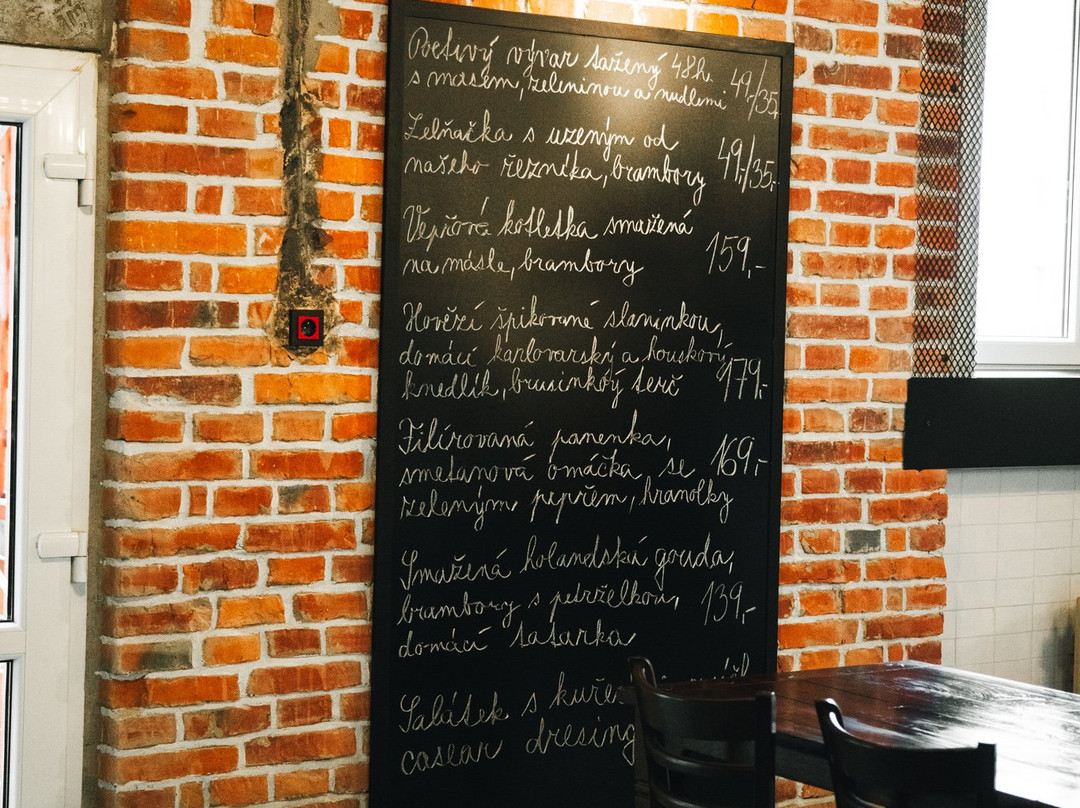 Poctivý vývar tažený 48h.
s masem, zeleninou a nudlemi 49,/35,
Zelňačka s uzeným od
našeho řezníka, brambory 49,/35,
Vepřová kotletka smažená
na másle, brambory 159,-
Hovězí špikované slaninkou,
domácí karlovarský a houskový
knedlík, brusinkový terč 179,-
Filírovaná panenka,
smetanová omáčka se 169,-
zeleným pepřem, hranolky
Smažená holandská gouda,
brambory s petrželkou, 139,-
domácí tatarka
Salátek s
caesar dresing